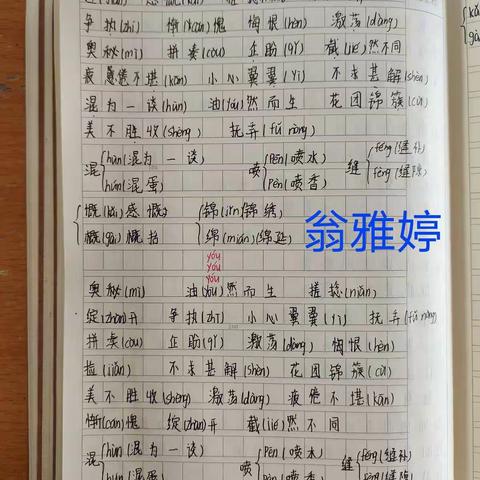 争执(zhí) 惭(cán)愧 悔恨(hèn) 激荡(dàng)
奥秘(mì) 拼凑(còu) 企盼(qǐ) 截(jié)然不同
疲惫不堪(kān) 小心翼翼(yì) 不求甚解(shèn)
混为一谈(hùn) 油(yóu)然而生 花团锦簇(cù)
美不胜收(shèng) 抚弄(fǔ nòng)
混 hùn(混为一谈) 喷 pēn(喷水) 缝 féng(缝补)
hún(混蛋) pèn(喷香) fèng(缝隙)
慨(kǎi)感慨 锦(jǐn)锦绣
概(gài)概括 绵(mián)绵延
翁雅婷
yóu
yóu
yóu
奥秘(mì) 油(yóu)然而生
绽(zhàn)开 争执(zhí) 小心翼翼(yì) 抚弄(fǔ nòng)
拼凑(còu) 企盼(qǐ) 激荡(dàng) 悔恨(hèn)
捡(jiǎn) 不求甚解(shèn) 花团锦簇(cù)
美不胜收(shèng) 激荡(dàng) 疲惫不堪(kān)
惭(cán)愧 绽(zhàn)开 截(jié)然不同
混 hùn(混为一谈) 喷 pēn(喷水) 缝 féng(缝补)
hún(混蛋) pèn(喷香) fèng(缝隙)